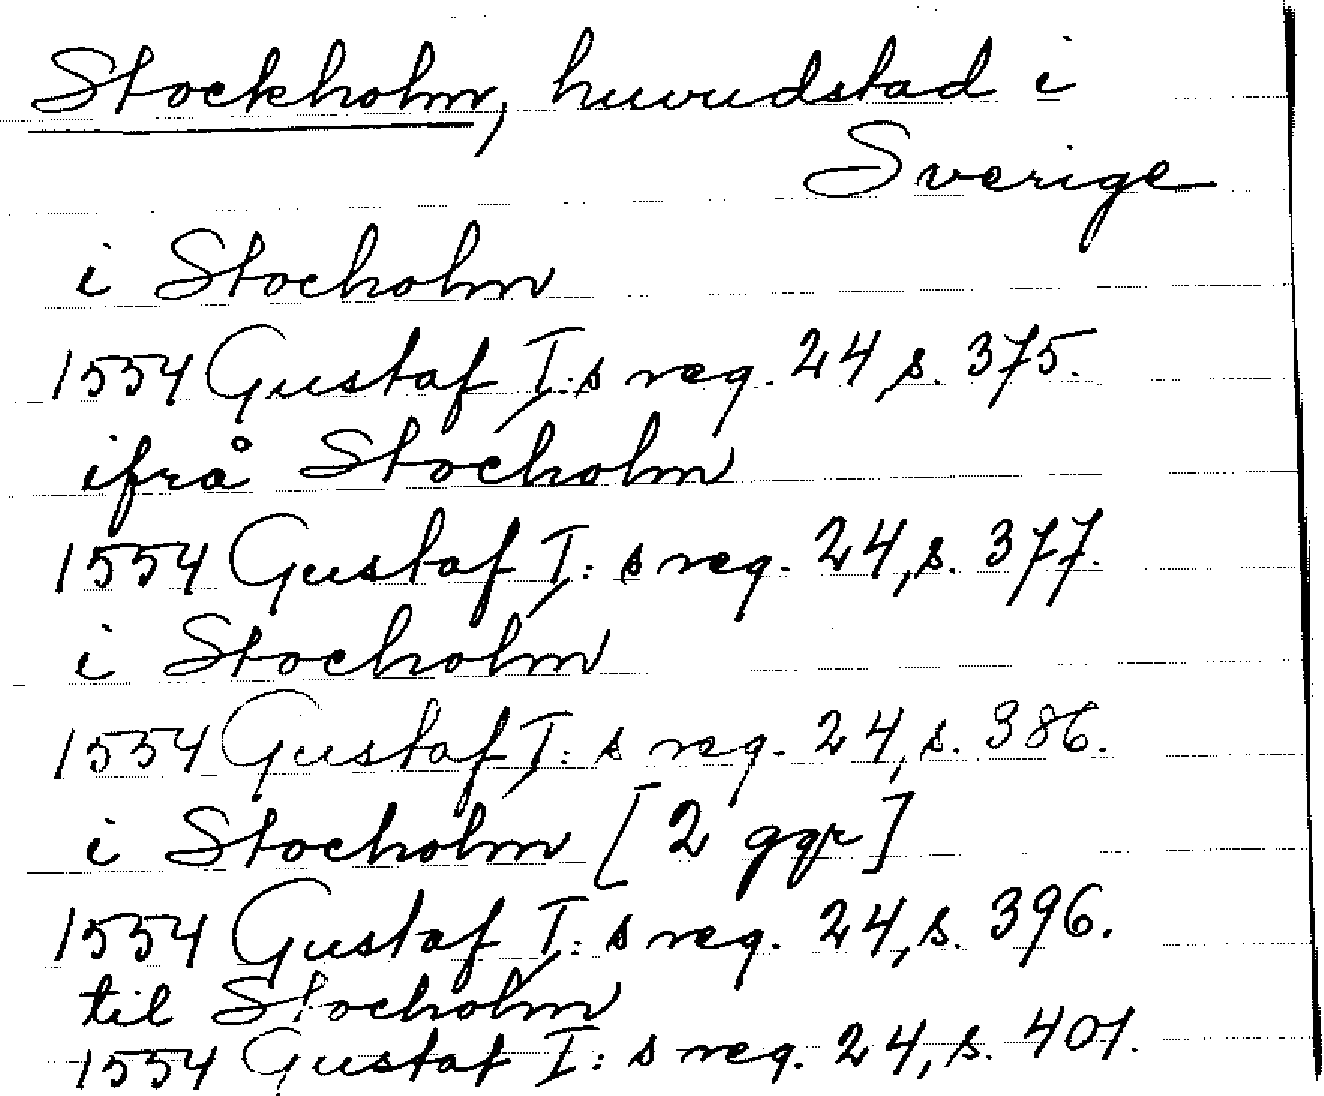 Stockholm, huvudstad i
Sverige
i Stocholm
1554 Gustaf I:s reg. 24, s. 375.
ifrå Stocholm
1554 Gustaf I:s reg. 24, s. 377.
i Stocholm
1554 Gustaf I:s reg. 24, s. 386.
i Stocholm [2 ggr]
1554 Gustaf I:s reg. 24, s. 396.
til Stocholm
1554 Gustaf I:s reg. 24, s. 401.